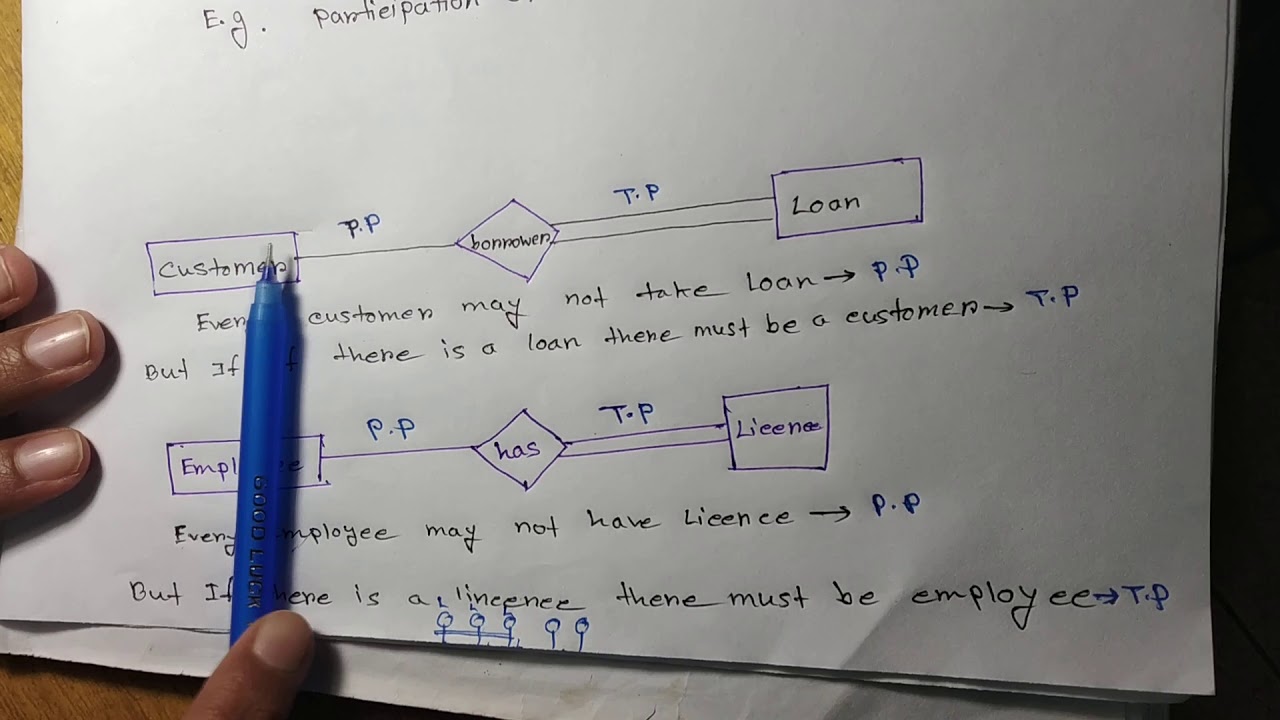 E.g. Participation
T.P
P.P
Loan
borrower
Customer
Every customer may not take Loan → P.P
But If if there is a loan there must be a customer → T.P
P.P
T.P
Licence
has
Employee
Every employee may not have Licence → P.P
But If there is a lincence there must be employee → T.P
GOOD LUCK